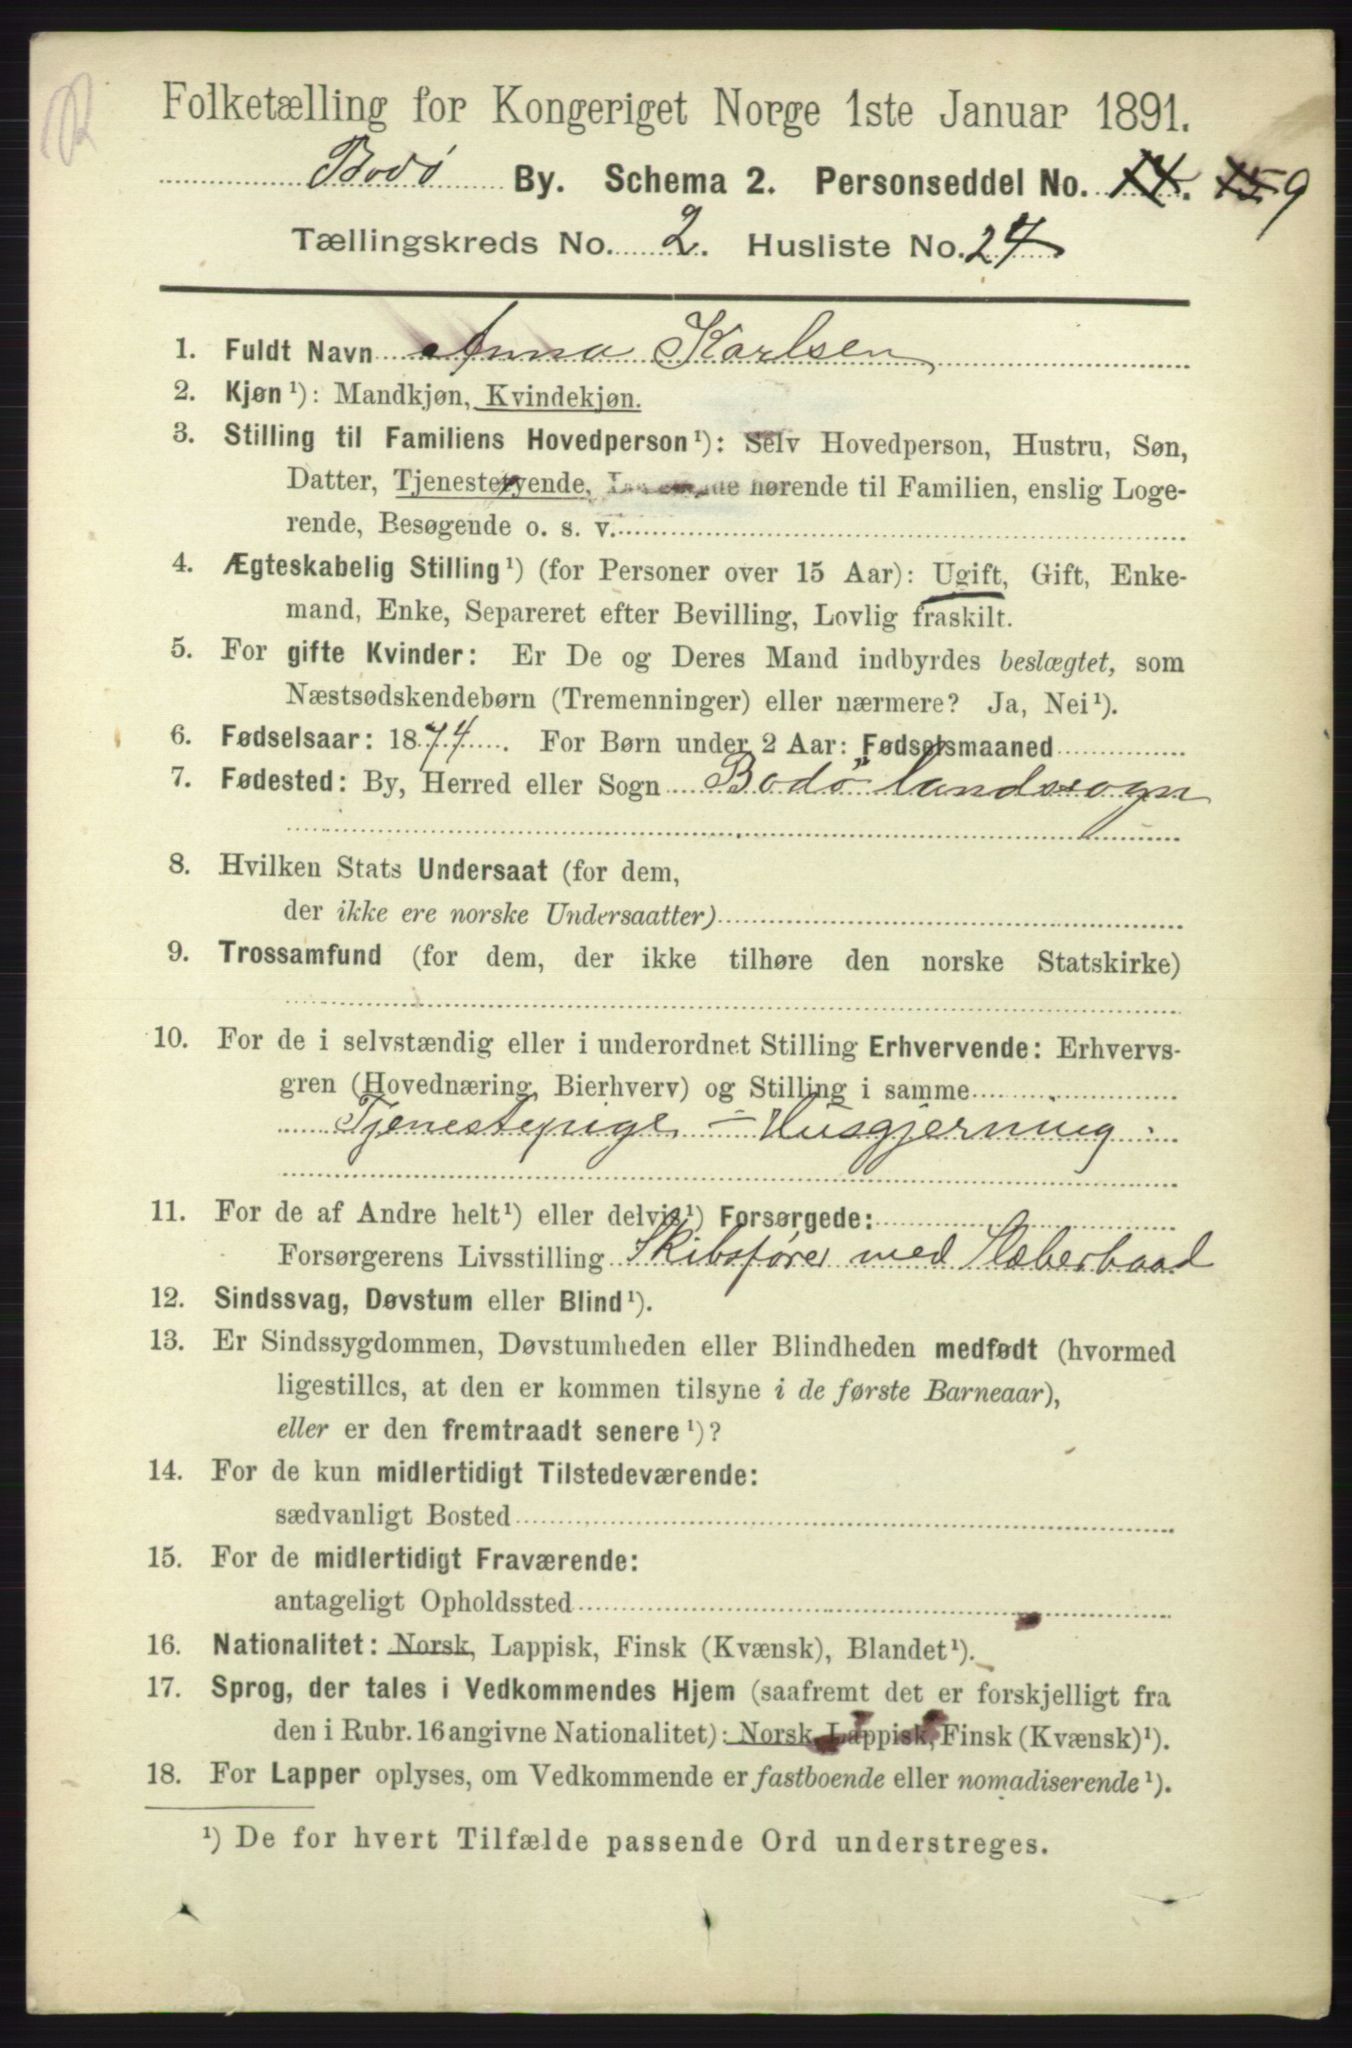 Folketælling for Kongeriget Norge 1ste Januar 1891.
Bodø By. Schema 2. Personseddel No. 14. 15 9
Tællingskreds No. 2. Husliste No. 24
1. Fuldt Navn Anna Karlsen
2. Kjøn¹): Mandkjøn, Kvindekjøn.
3. Stilling til Familiens Hovedperson¹): Selv Hovedperson, Hustru, Søn,
Datter, Tjenestetyende, hørende til Familien, enslig Loge-
rende, Besøgende o. s. v.
4. Ægteskabelig Stilling¹) (for Personer over 15 Aar): Ugift, Gift, Enke-
mand, Enke, Separeret efter Bevilling, Lovlig fraskilt.
5. For gifte Kvinder: Er De og Deres Mand indbyrdes beslægtet, som
Næstsødskendebørn (Tremenninger) eller nærmere? Ja, Nei¹).
6. Fødselsaar: 1874. For Børn under 2 Aar: Fødselsmaaned
7. Fødested: By, Herred eller Sogn Bodø landssogn
8. Hvilken Stats Undersaat (for dem,
der ikke ere norske Undersaatter)
9. Trossamfund (for dem, der ikke tilhøre den norske Statskirke)
10. For de i selvstændig eller i underordnet Stilling Erhvervende: Erhvervs-
gren (Hovednæring, Bierhverv) og Stilling i samme
Tjenestepige - Husgjerning
11. For de af Andre helt¹) eller delvis¹) Forsørgede:
Forsørgerens Livsstilling Skibsfører med
12. Sindssvag, Døvstum eller Blind¹).
13. Er Sindssygdommen, Døvstumheden eller Blindheden medfødt (hvormed
ligestilles, at den er kommen tilsyne i de første Barneaar),
eller er den fremtraadt senere¹)?
14. For de kun midlertidigt Tilstedeværende:
sædvanligt Bosted
15. For de midlertidigt Fraværende:
antageligt Opholdssted
16. Nationalitet: Norsk, Lappisk, Finsk (Kvænsk), Blandet¹).
17. Sprog, der tales i Vedkommendes Hjem (saafremt det er forskjelligt fra
den i Rubr. 16 angivne Nationalitet): Norsk, Lappisk, Finsk (Kvænsk)¹).
18. For Lapper oplyses, om Vedkommende er fastboende eller nomadiserende¹).
¹) De for hvert Tilfælde passende Ord understreges.